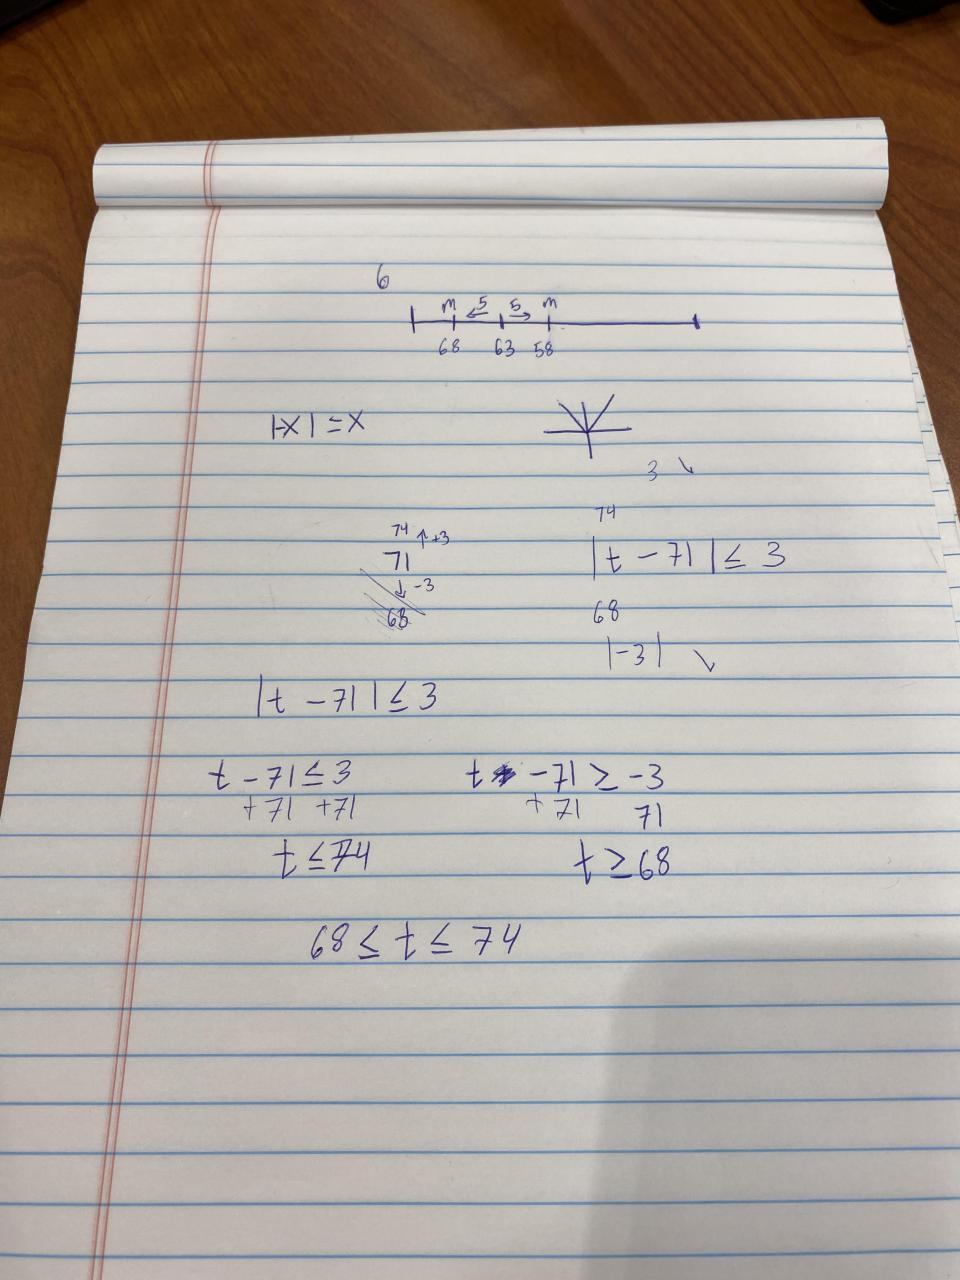 6
m 5 5 m
68 63 58
|-x| = x
3 ↘
74 ↑ +3
71
↓ -3
68
74
|t - 71| ≤ 3
68
|-3| ↘
|t - 71| ≤ 3
t - 71 ≤ 3
+71 +71
t ≤ 74
t - 71 ≥ -3
+71 71
t ≥ 68
68 ≤ t ≤ 74